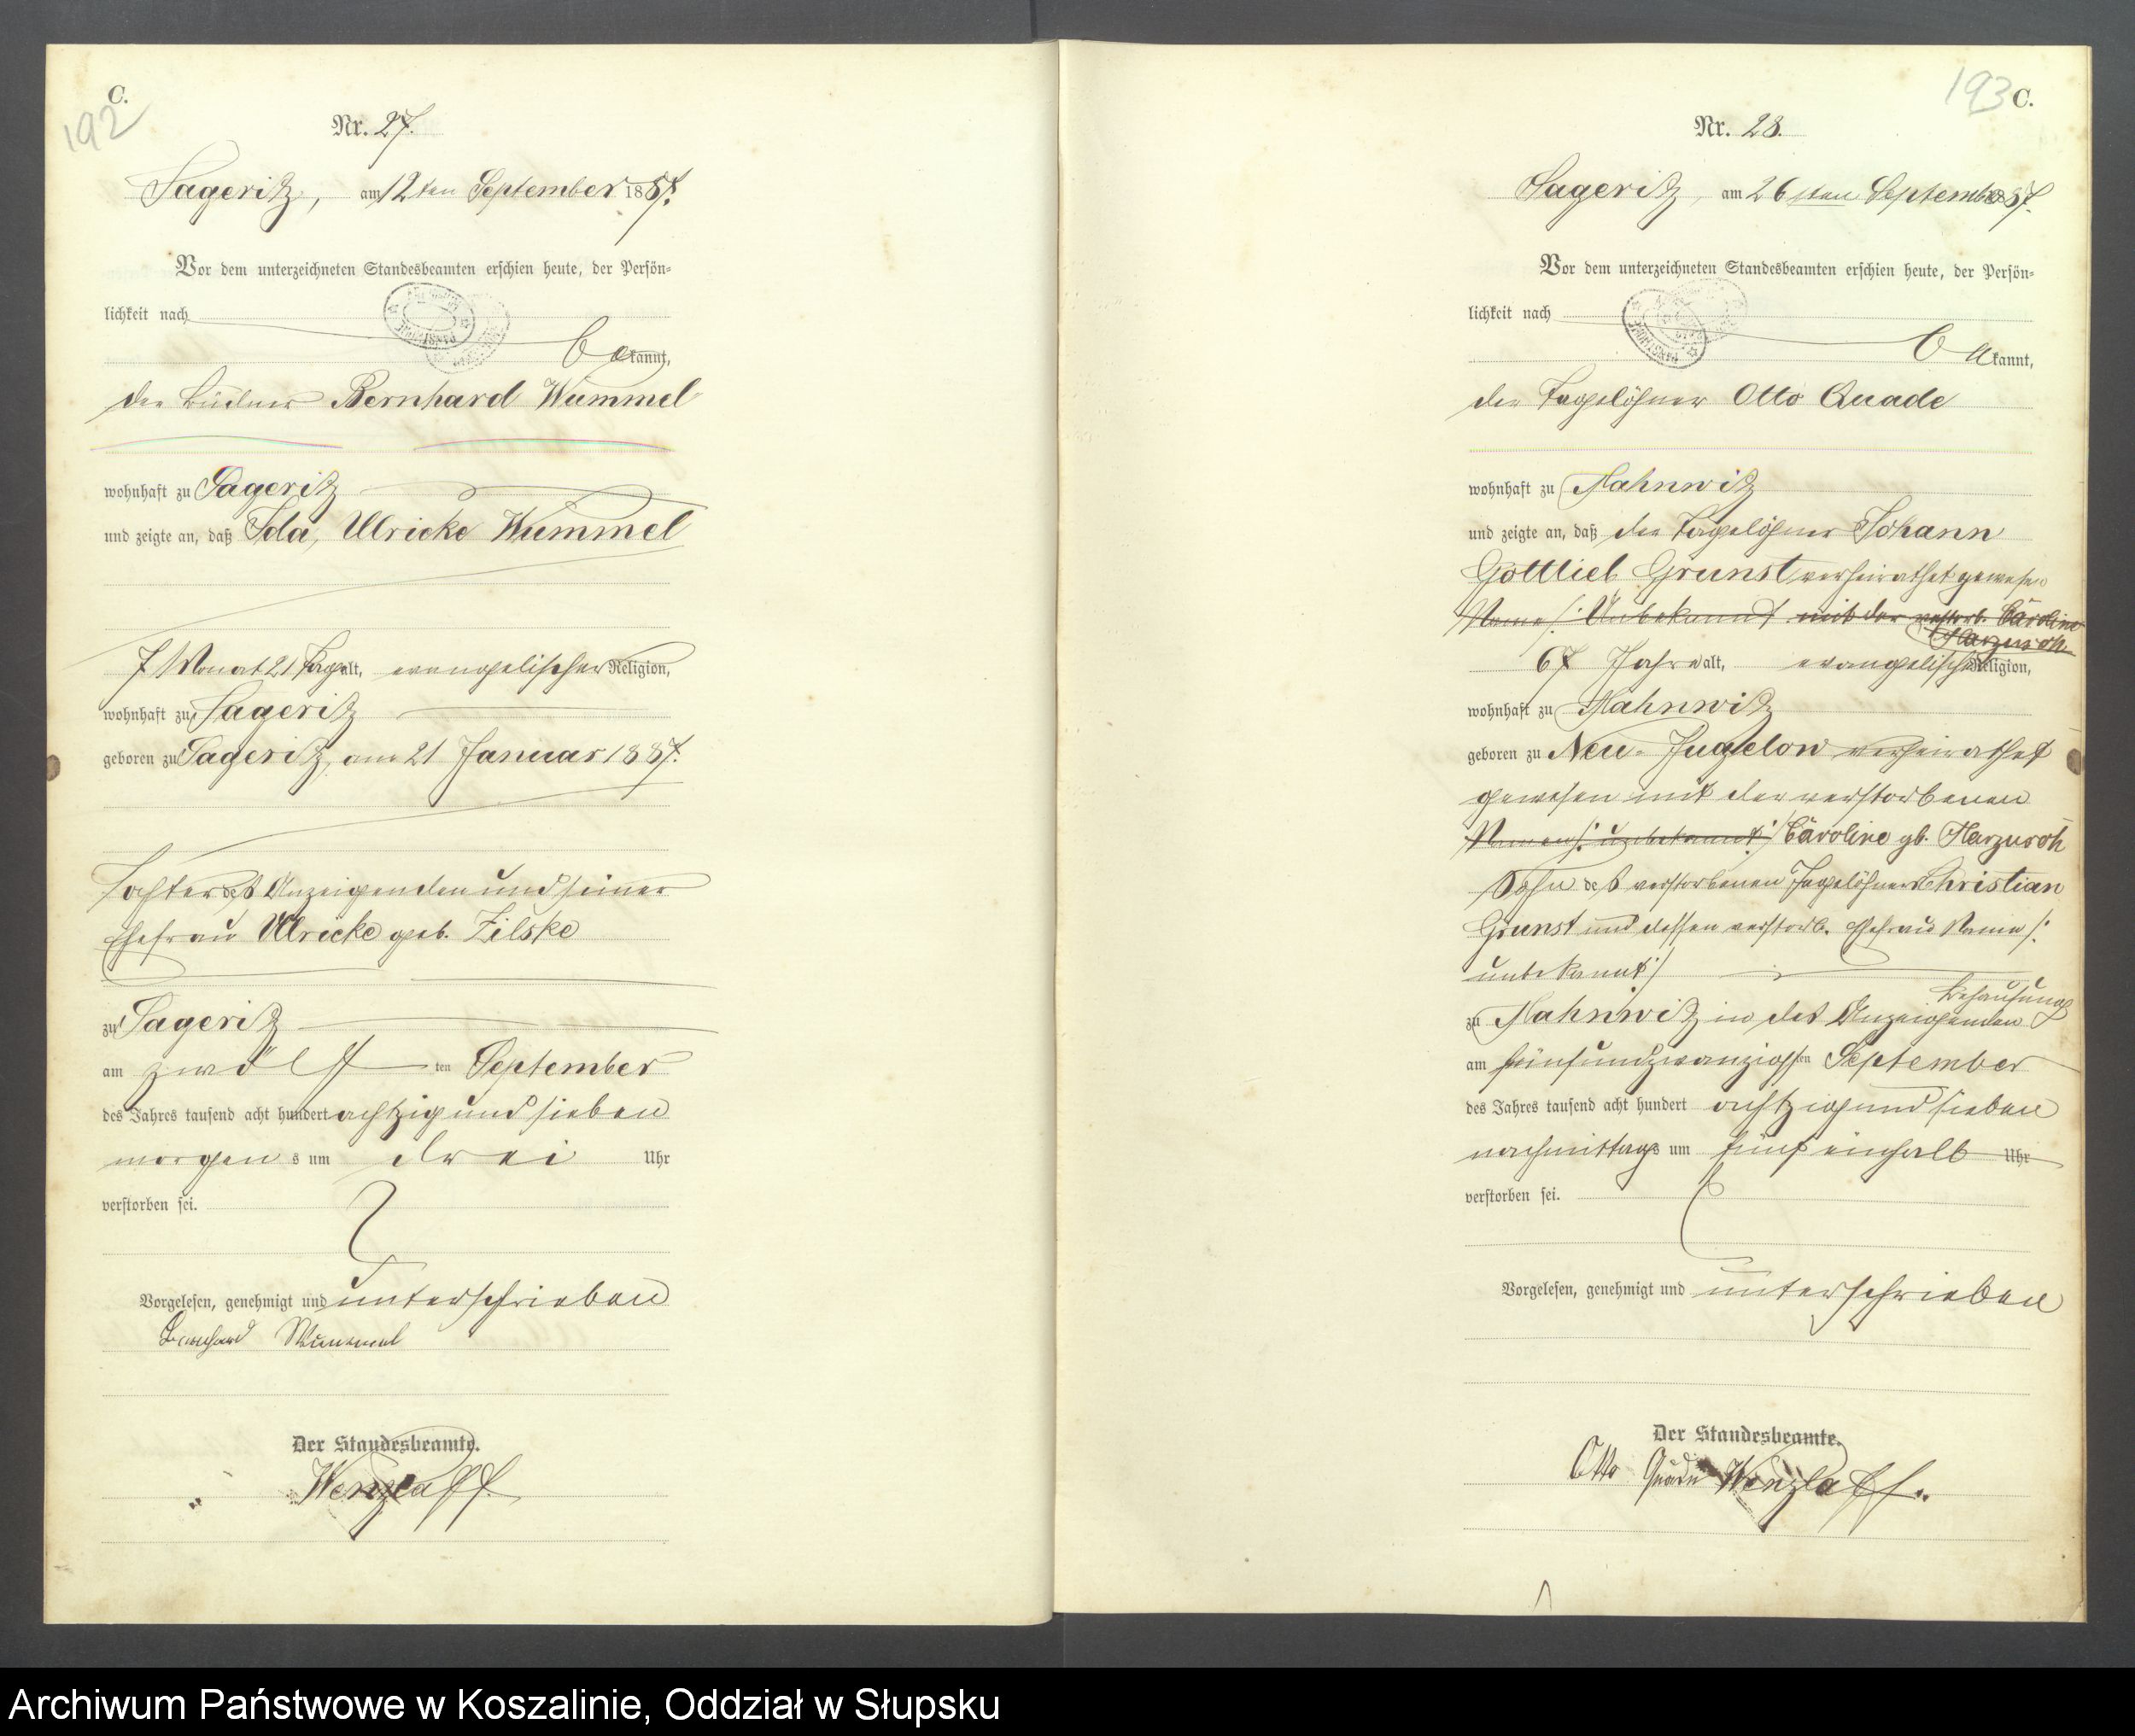 C.
192
Nr. 27.
Sageritz, am 12ten September 1887.
Vor dem unterzeichneten Standesbeamten erschien heute, der Persön-
lichkeit nach
bekannt,
der Büdner Bernhard Wummel
wohnhaft zu Sageritz
und zeigte an, daß Ida, Ulricke Wummel
7 Monat 21 Tage alt, evangelischer Religion,
wohnhaft zu Sageritz
geboren zu Sageritz, am 21 Januar 1887.
Tochter des Anzeigenden und seiner
Ehefrau Ulricke geb. Zilske
zu Sageritz
am zwölften September
des Jahres tausend acht hundert achtzig und sieben
morgens um drei Uhr
verstorben sei.
Vorgelesen, genehmigt und unterschrieben
Bernhard Wummel
Der Standesbeamte.
Wenzlaff
193
C.
Nr. 28.
Sageritz, am 26sten September 1887.
Vor dem unterzeichneten Standesbeamten erschien heute, der Persön-
lichkeit nach
bekannt,
der Tagelöhner Otto Quade
wohnhaft zu Mahnwitz
und zeigte an, daß der Tagelöhner Johann
Gottlieb Grunst verheirathet gewesen
Name /: Unbekannt mit der verstorb. Caroline
67 Jahre alt, evangelischer Religion,
wohnhaft zu Mahnwitz
geboren zu Neu-Jugelow verheirathet
gewesen mit der verstorbenen
Namen /: unbekannt :/ Caroline gb.
Sohn des verstorbenen Tagelöhners Christian
Grunst und dessen verstorb. Ehefrau Name /:
unbekannt :/
zu Mahnwitz in des Anzeigenden Behausung
am fünfundzwanzigsten September
des Jahres tausend acht hundert achtzig und sieben
nachmittags um fünf einhalb Uhr
verstorben sei.
Vorgelesen, genehmigt und unterschrieben
Der Standesbeamte.
Otto Quade Wenzlaff.
Archiwum Państwowe w Koszalinie, Oddział w Słupsku